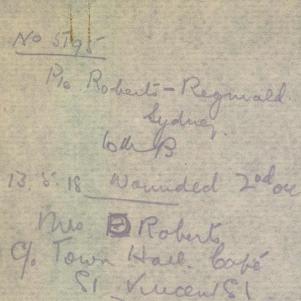 No 5195
Pte Roberts - Reginald.
Sydney.
10th B
13.5.18 Wounded 2nd oc
Mrs E Roberts
C/o Town Hall. Café
St Vincent St.